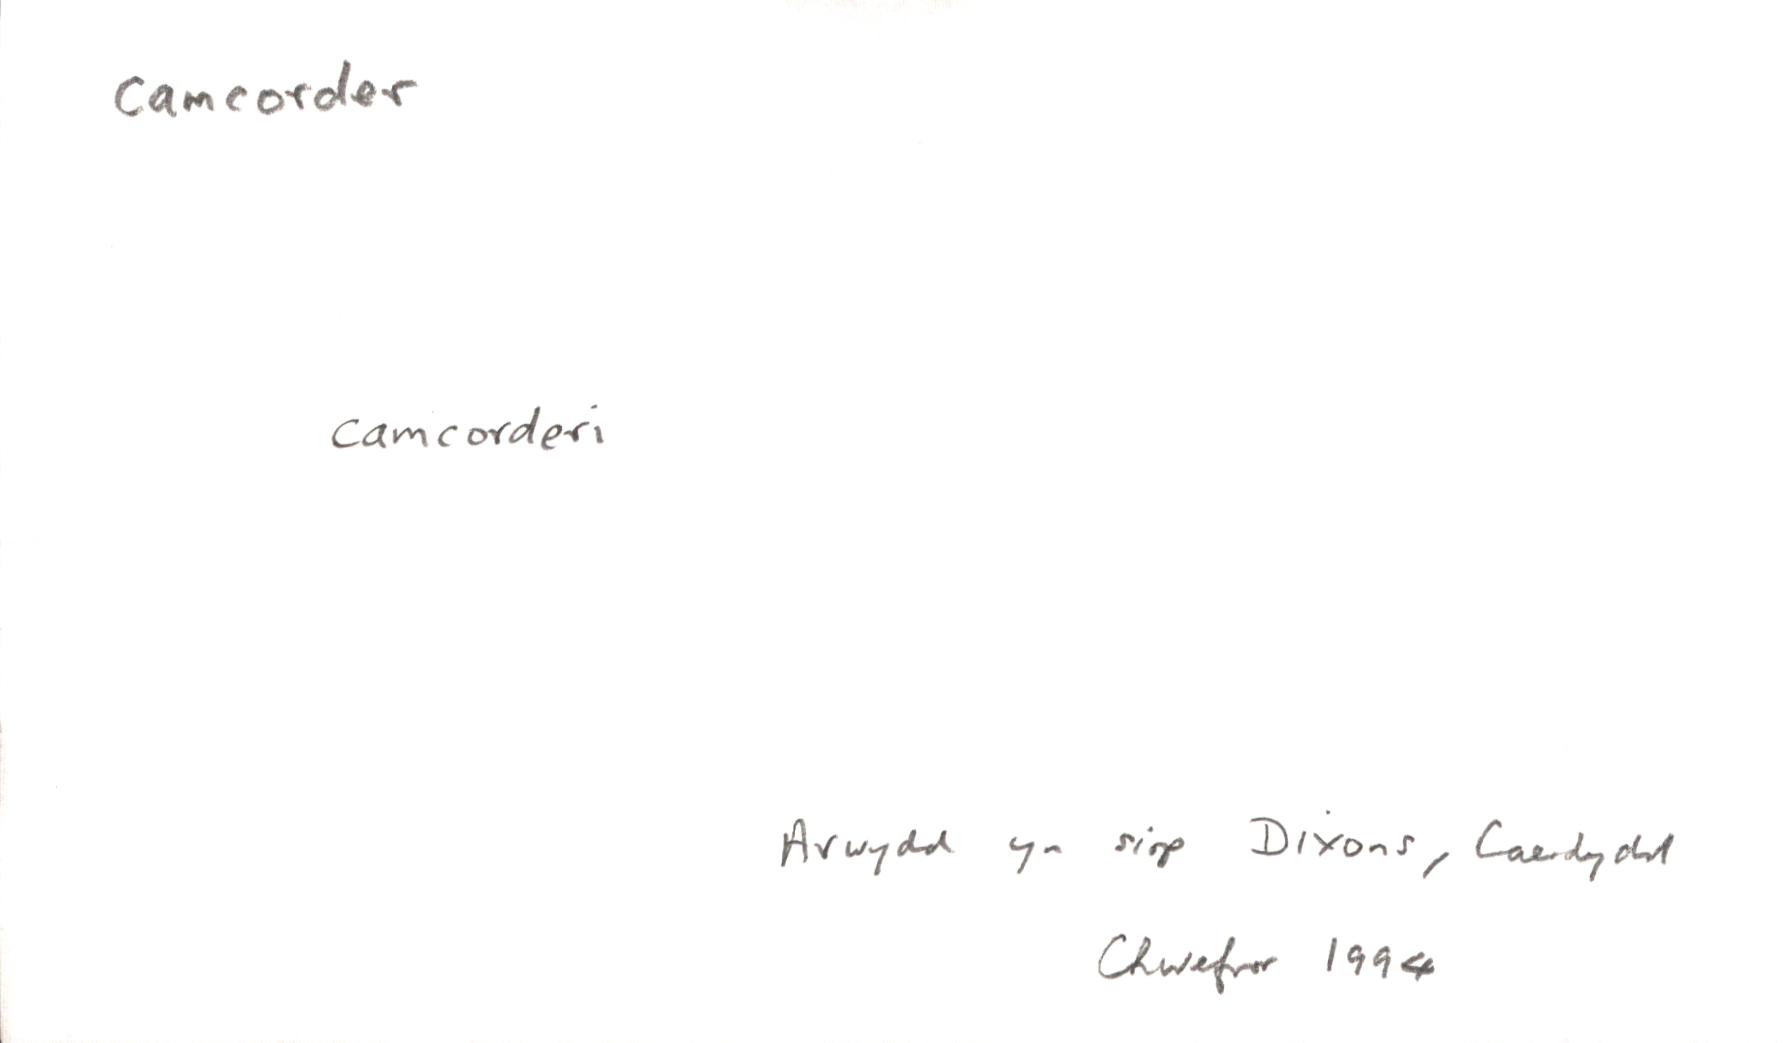 Camcorder
camcorderi
Arwydd yn siop Dixons, Caerdydd
Chwefror 1994